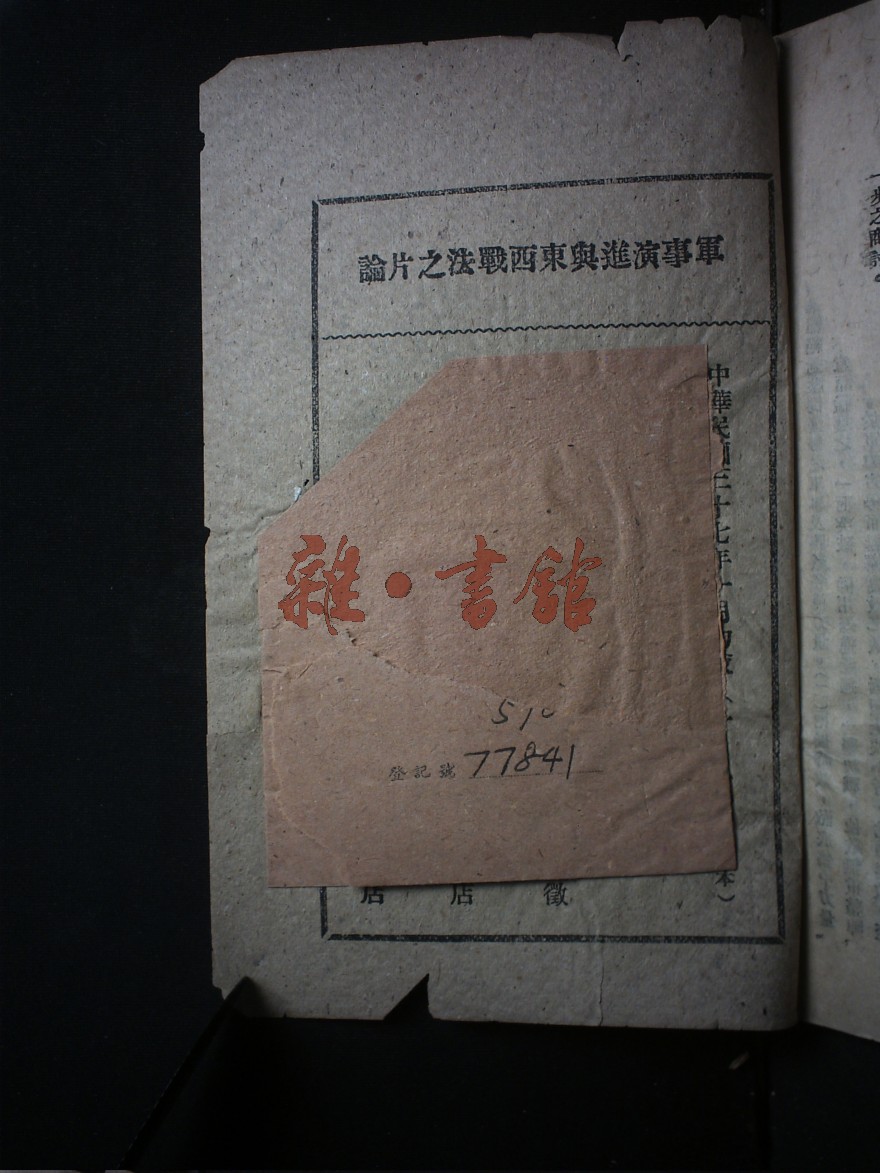 軍事演進與東西戰法之片論
中華民國三十七年十月初版
本）
徵
店
店
雜·書館
510
登記號 77841